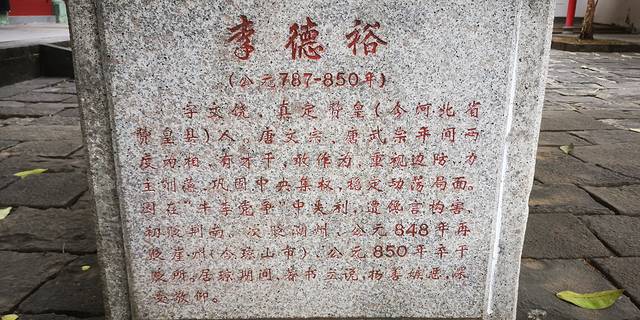 李德裕
(公元787-850年)
字文饶，真定赞皇(今河北省
赞皇县)人。唐文宗、唐武宗年间两
度为相。有才干，敢作为，重视边防，力
主削藩，巩固中央集权，稳定动荡局面。
因在“牛李党争”中失利，遭德言构害，
初贬荆南，次贬潮州，公元848年再
贬崖州(今琼山市)，公元850年卒于
贬所。居琼期间，著书立说，扬善嫉恶，深
受敬仰。